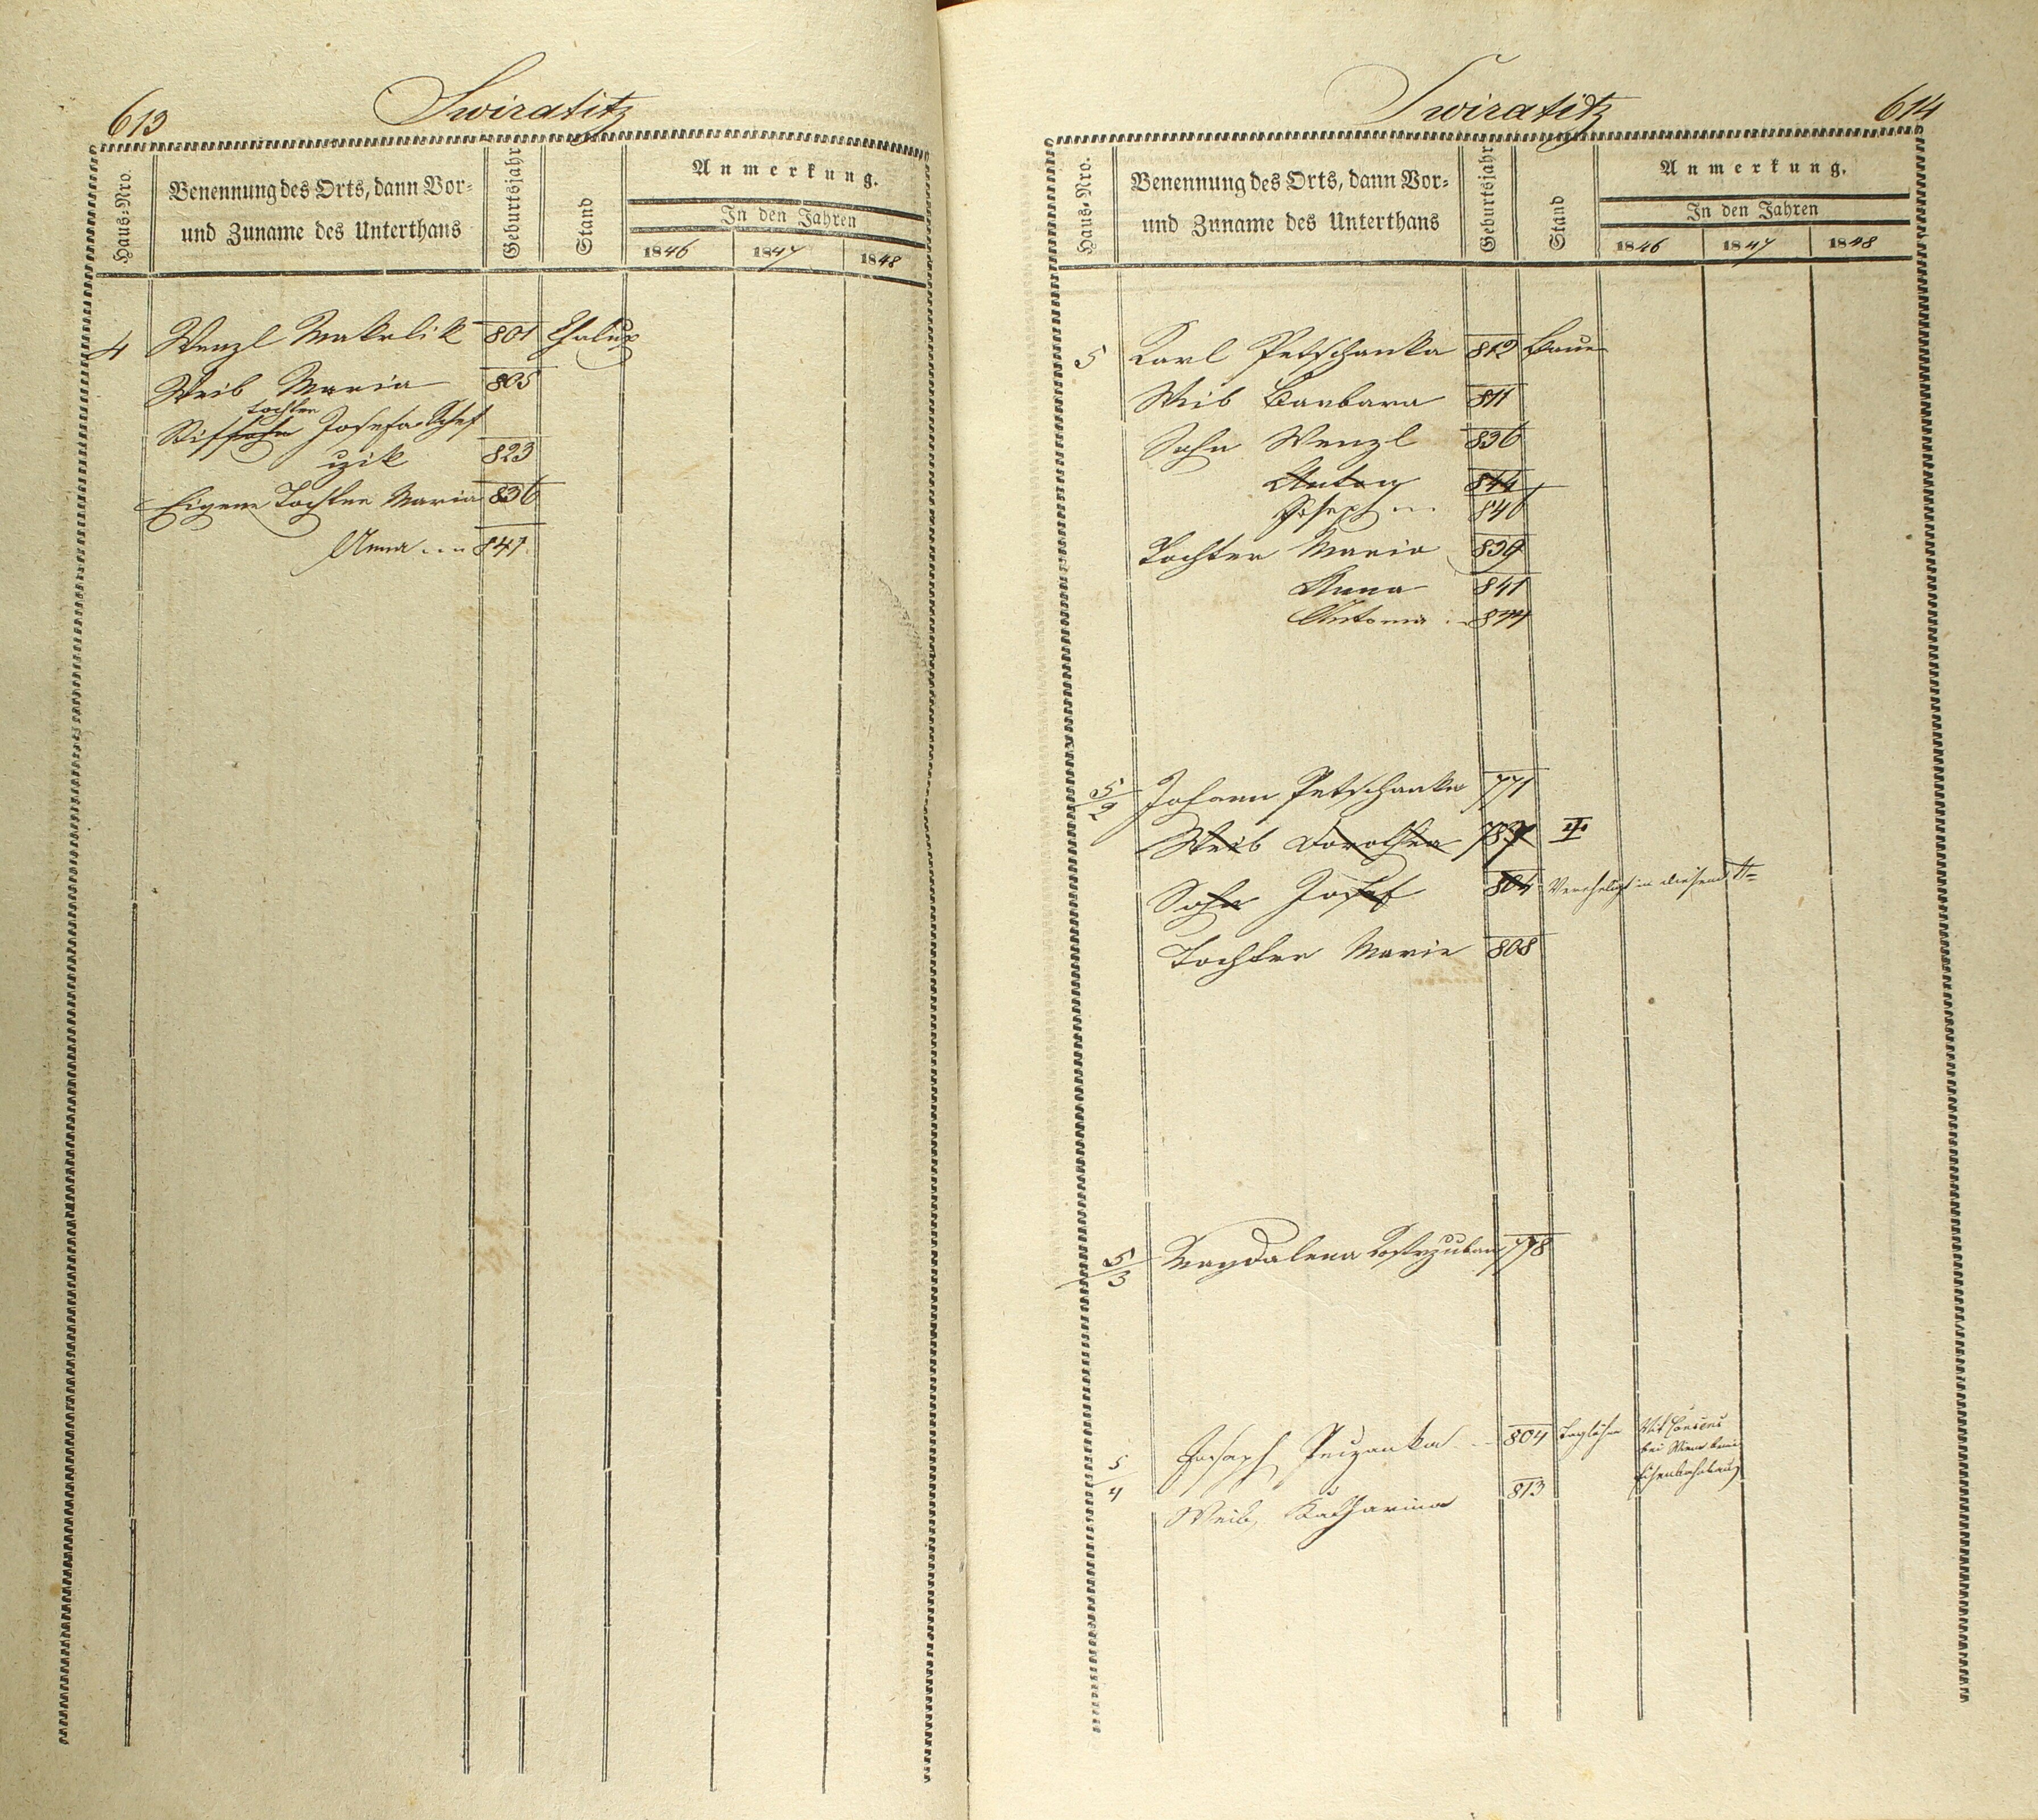 613
Swiratitz
Haus-Nro.
Benennung des Orts, dann Vor-
und Zuname des Unterthans
Geburtsjahr
Stand
Anmerkung.
In den Jahren
1846 1847 1848
4 Wenzl Makrlik 801 Chalup
Weib Maria 805
tochter
Stiefsohn Josefa
823
Eigene Tochter Maria 836
Anna 841
Swiratitz
614
Haus-Nro.
Benennung des Orts, dann Vor-
und Zuname des Unterthans
Geburtsjahr
Stand
Anmerkung.
In den Jahren
1846 1847 1848
5 Karl Petschanka 812 Bauer
Weib Barbara 811
Sohn Wenzl 836
Anton 844
Joseph 846
Tochter Maria 839
Anna 841
Antonia 844
5/2 Johann Petschanka 771
Weib Dorothea
Sohn Josef 804 Verehelicht in diesem
Tochter Marie 808
5/3 Magdalena 778
5/4 Joseph 804 Taglöhner Mit Consens
bei Wien beim
Eisenbahnbau
Weib, Katharina 813